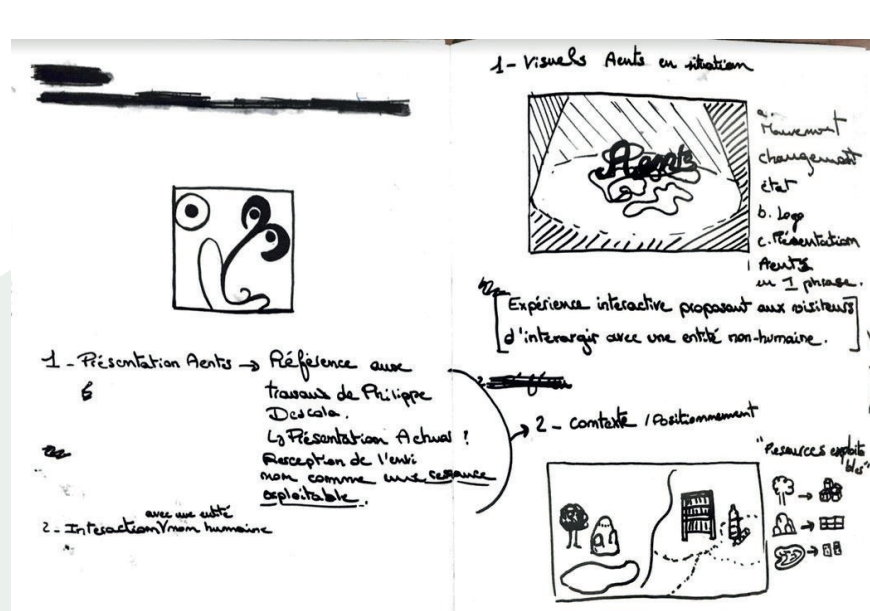 1 - Présentation Aents → Référence aux
travaux de Philippe
Descola.
↳ Présentation Achuar ?
Perception de l'envi
nom comme une ressource
exploitable.
2 - Interaction non humaine
avec une entité
1 - Visuels Aents en situation
Aents
a.
Mouvement
changement
état
b. Logo
c. Présentation
Aents
en 1 phrase.
[Expérience interactive proposant aux visiteurs
d'interargir avec une entité non-humaine.]
2 - Contexte / Positionnement
"Resources exploita
bles"